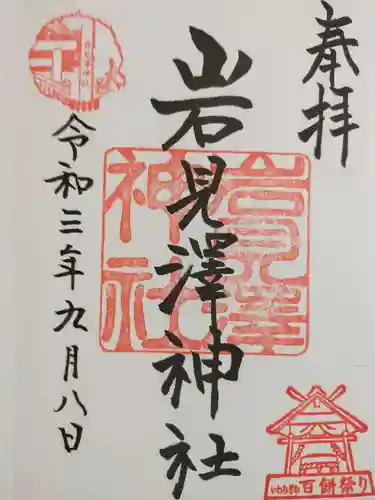 奉拝
岩見澤神社
岩見澤神社
令和三年九月八日
いわみざわ百餅祭り